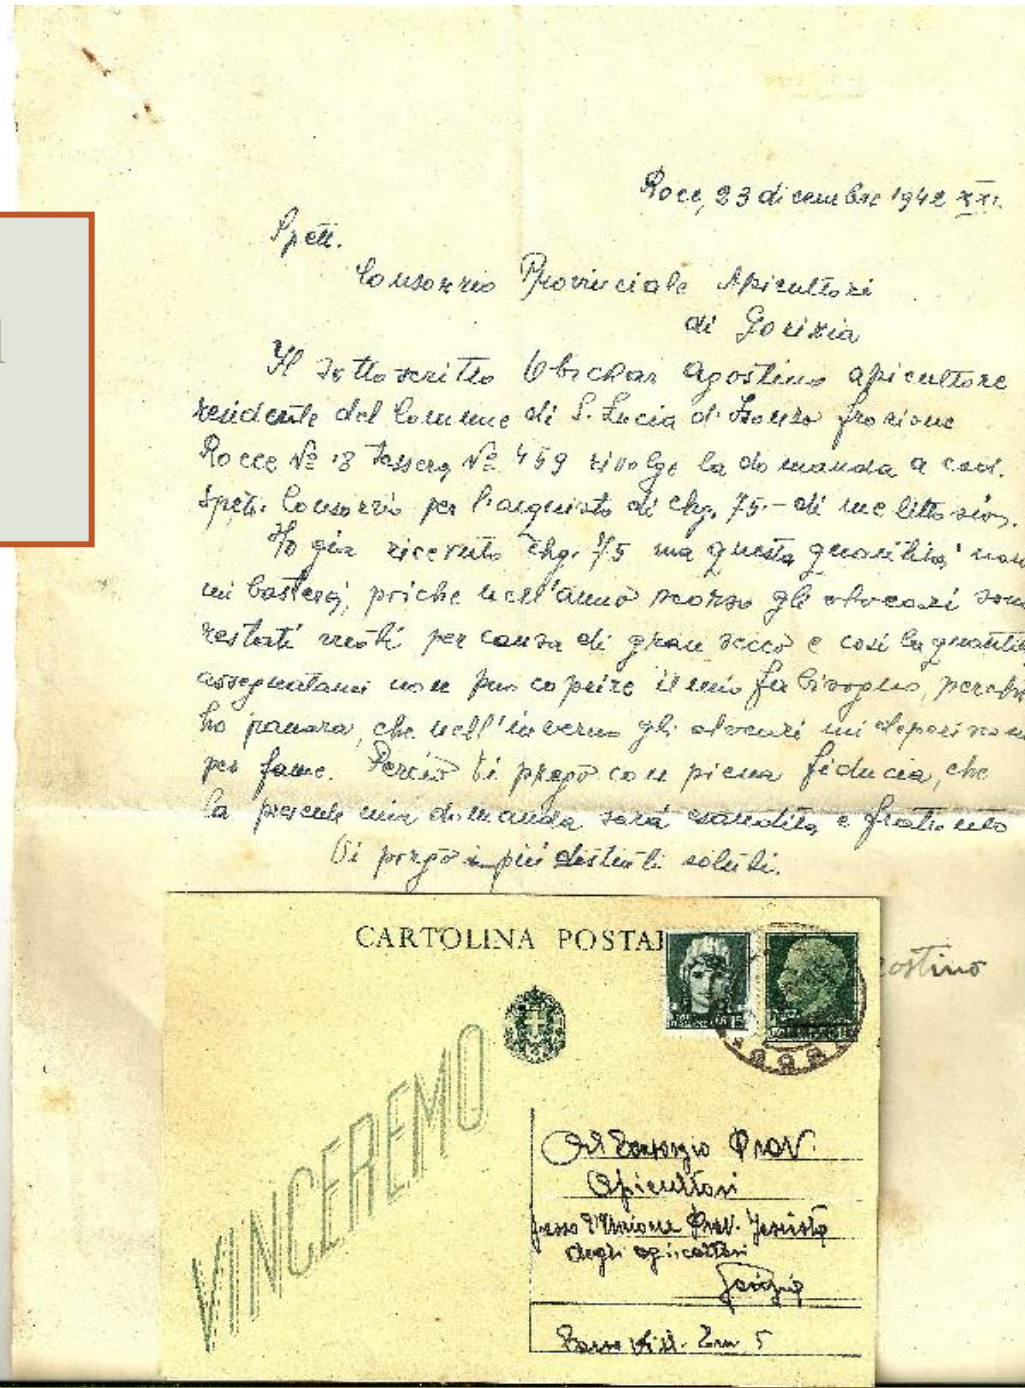 Roce, 23 dicembre 1942 XXI.
Spett.
Consorzio Provinciale Apicultori
di Gorizia
Il sottoscritto Ubichar Agostino apicultore
residente del Comune di S. Lucia d'Isonzo frazione
Rocce Nº 18 Tessera Nº 459 rivolge la domanda a cod.
Spett. Consorzio per l'acquisto di chg. 75.- di melittosion.
Ho gia ricevuto chg. 75 ma questa quantità non
mi basterà, priche nell'anno scorso gli alveari sono
restati vuoti per causa di gran secco e così la quantità
assegnatami non puo copeire il mio fabisogno, perchè
ho paura, che nell'inverno gli alveari mi deperiscono
per fame. Perciò Vi prego con piena fiducia, che
la presente mia domanda sarà esaudita e frattento
Vi porgo i più distinti saluti.
ostino
CARTOLINA POSTA
VINCEREMO
Al Consorzio Prov.
Apicultori
presso l'Unione Prov.
degli agricoltori
Gorizia
Corso Vitt. Em. 5